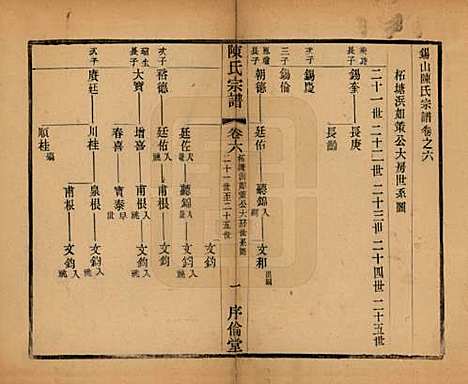 錫山陳氏宗譜卷之六
柘塘浜如策公大房世系圖
二十一世 二十二世 二十三世 二十四世 二十五世
長子 錫奎 長庚
次子 錫慶 長齡
三子 錫倫
長子 朝德 廷佑 聽錦 入嗣 文和 出嗣
次子 裕德 廷佐 聽錦 入 文鈞
廷佑 入嗣 甫根 入 文鈞 入祧
長子 大寶 增喜 甫根 文鈞 入祧
春喜 寶泰 早
次子 廣廷 川桂 泉根 入 文鈞 入祧
甫根 祧 文鈞 入祧
順桂 出嗣
陳氏宗譜
卷六
柘塘浜如策公大房世系圖
二十一世至二十五世
一
序倫堂